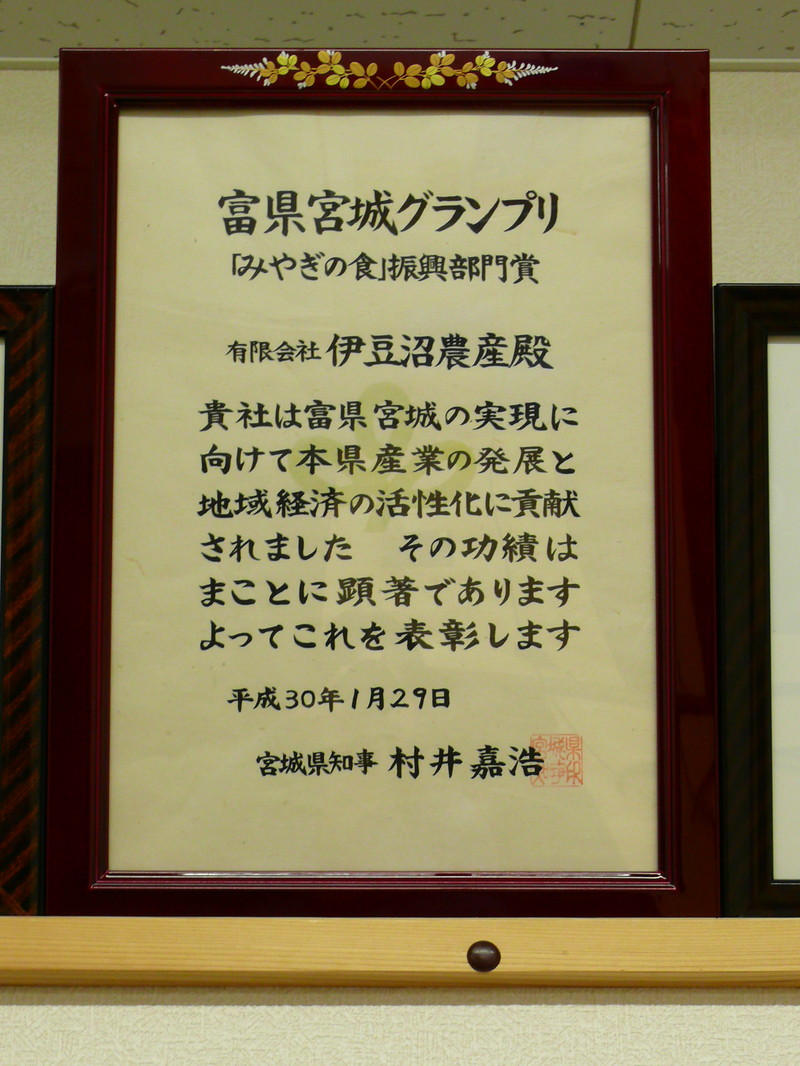 富県宮城グランプリ
「みやぎの食」振興部門賞
有限会社 伊豆沼農産殿
貴社は富県宮城の実現に
向けて本県産業の発展と
地域経済の活性化に貢献
されました　その功績は
まことに顕著であります
よってこれを表彰します
平成30年1月29日
宮城県知事 村井嘉浩